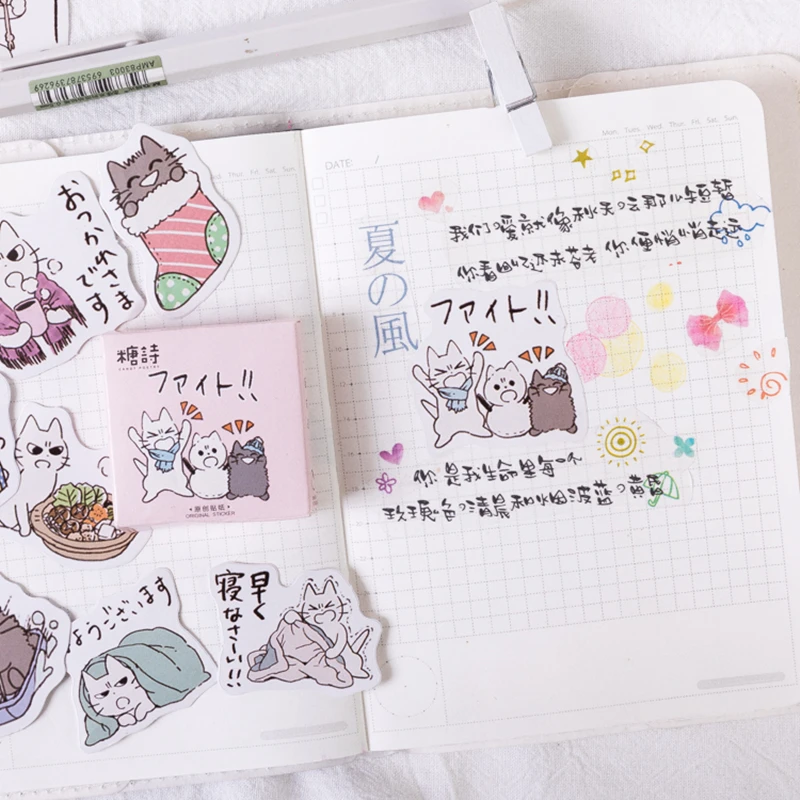 AMP83003 6953787396269
おつかれさま
です
糖詩
CANDY POETRY
ファイト!!
•原创贴纸•
ORIGINAL STICKER
ようございます
早く
寝なさーい!!
DATE: /
Mon. Tues. Wed. Thur. Fri. Sat. Sun.
我们的爱就像秋天的云那么短暂
你看 还未苍老 你便悄悄走远
夏の風
ファイト!!
你是我生命里每一个
玫瑰色的清晨和烟波蓝的黄昏